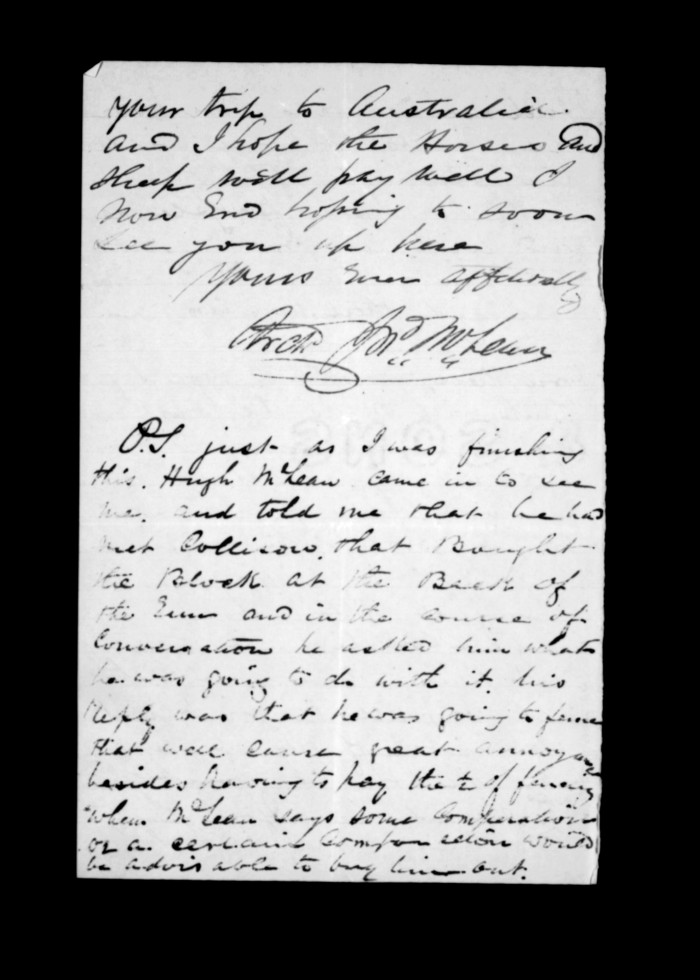 your trip to Australia
and I hope the Horses and
sheep will pay well I
now End hoping to soon
see you up here
Yours Ever
Archd Jno. McLean
P.S. just as I was finishing
this. Hugh McLean came in to see
me, and told me that he had
met Collison, that Bought
the Block at the Back of
the and in the course of
Conversation he asked him what
he was going to do with it. his
Reply was that he was going to fence
that will cause great annoyance
besides having to pay the ½ of fencing
when McLean says some
or a certain would
be advisable to buy him out.